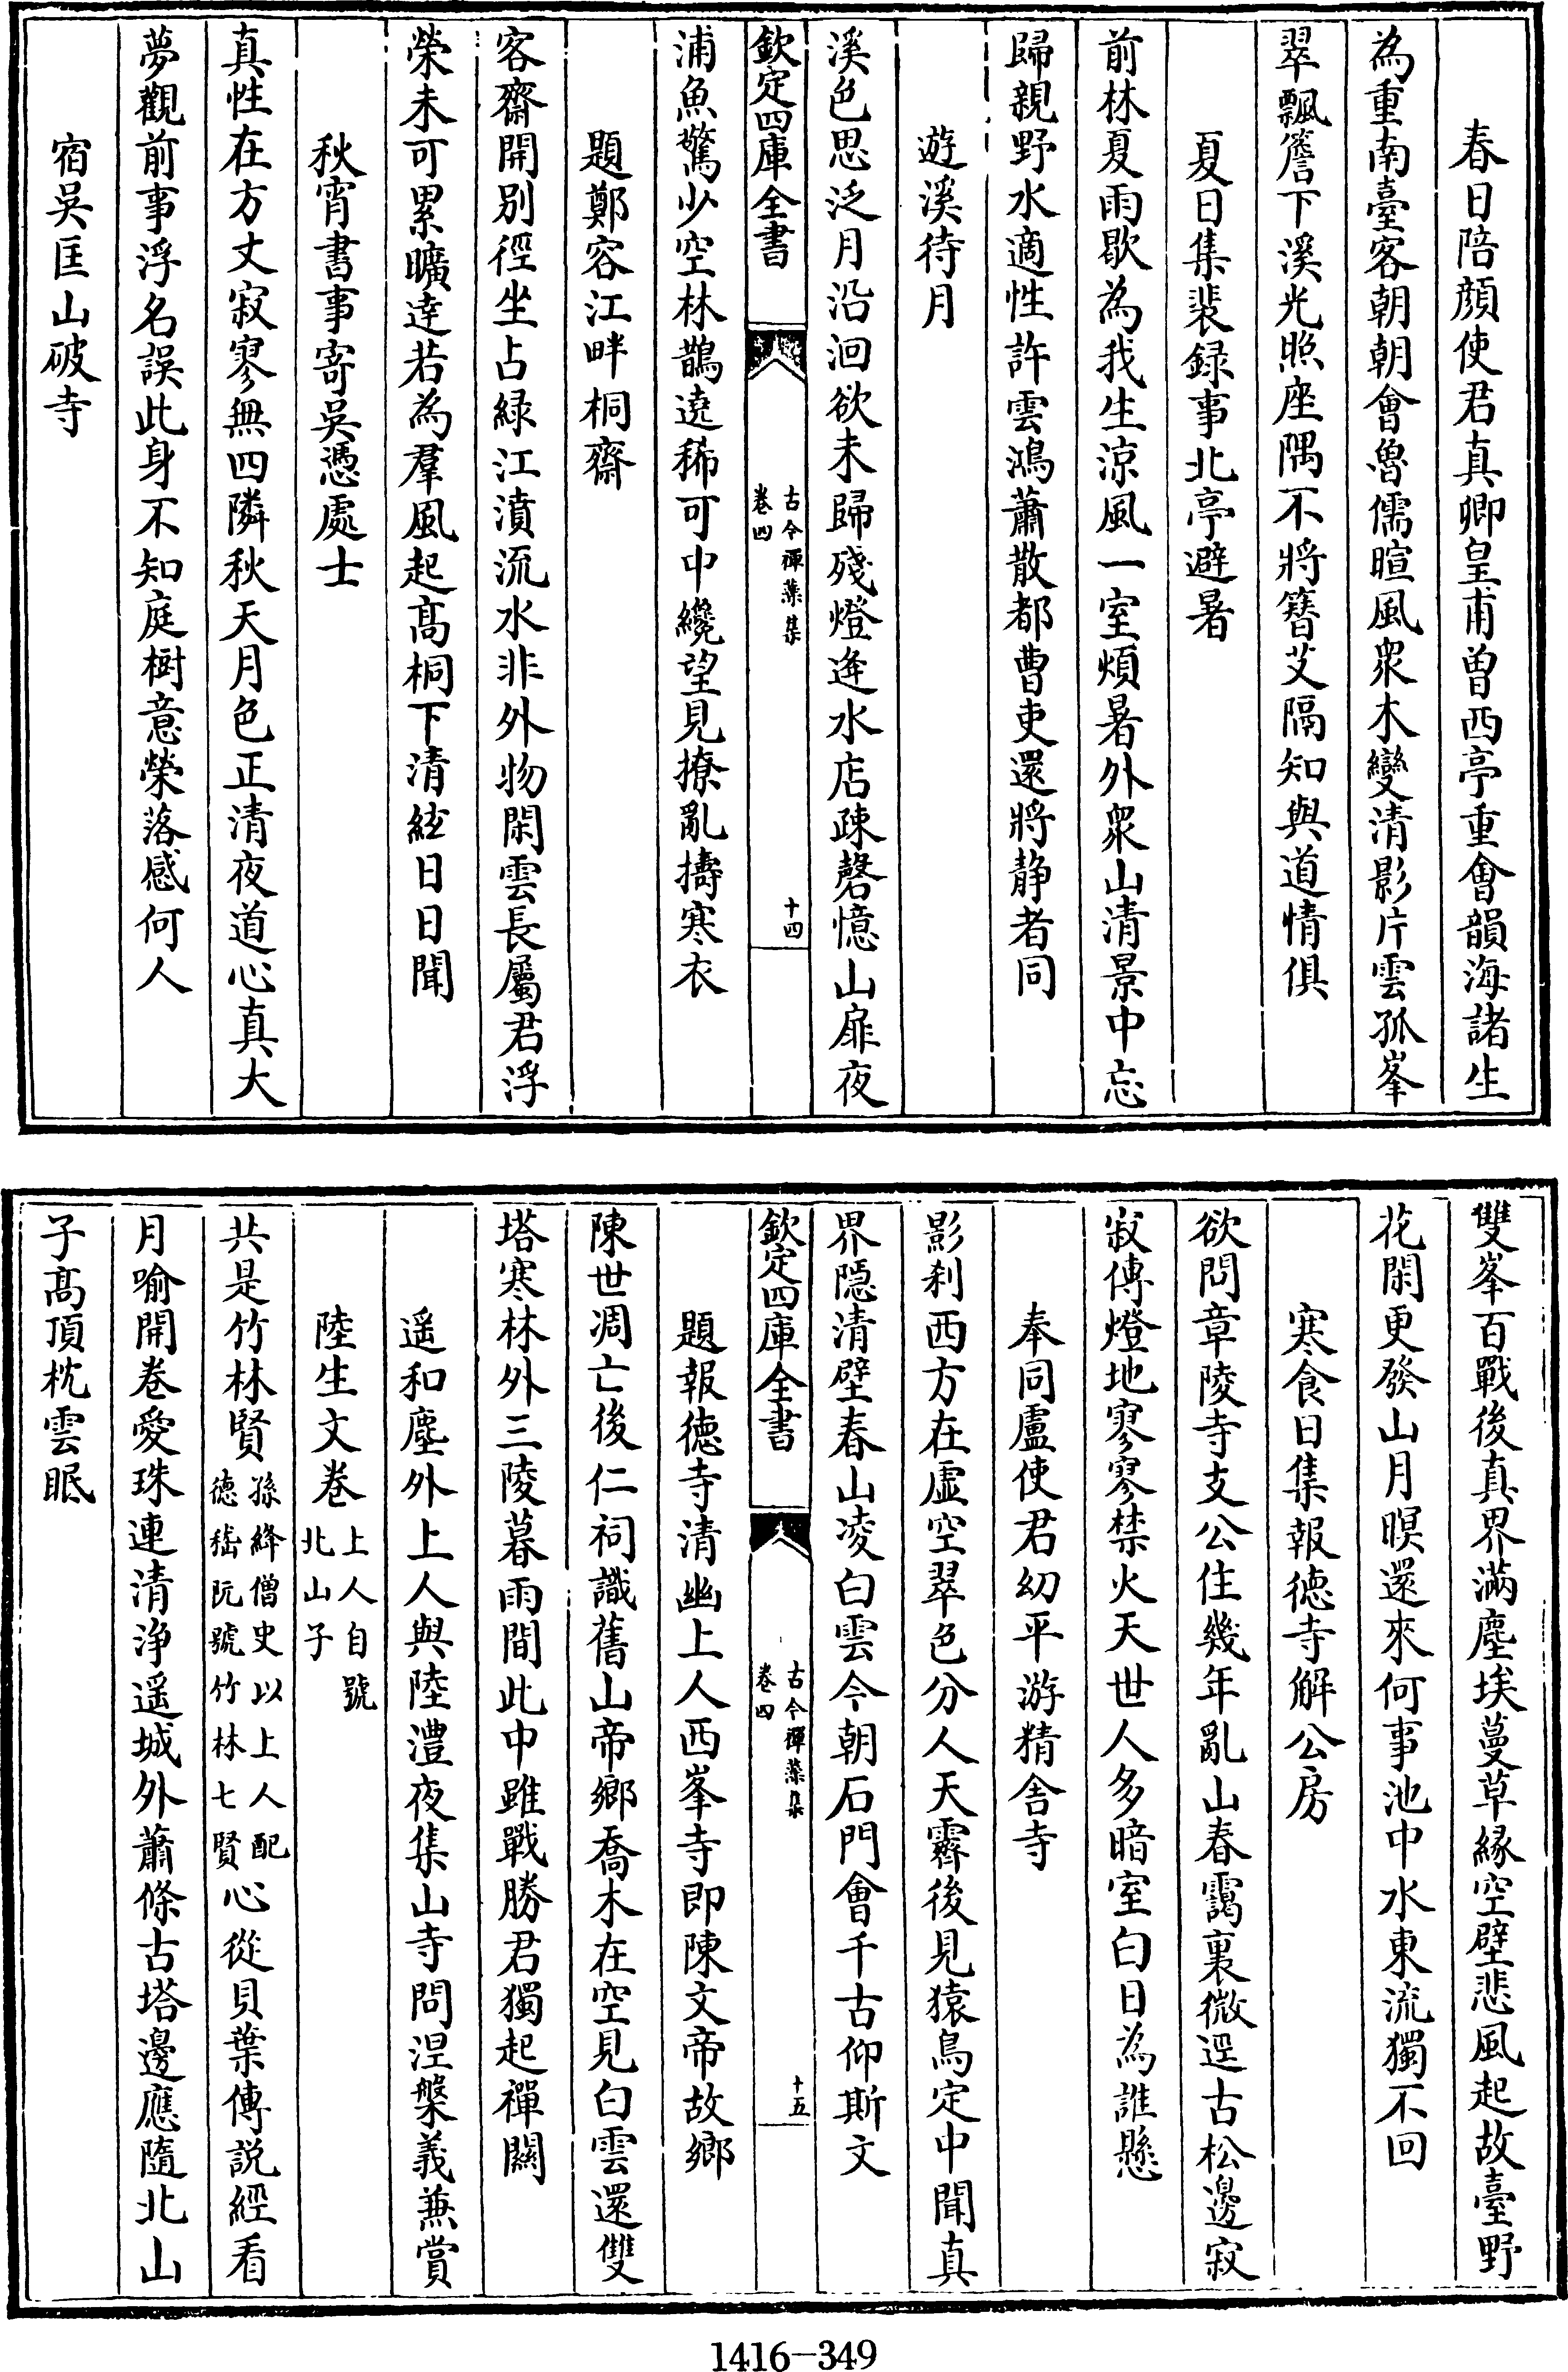 春日陪顔使君真卿皇甫曽西亭重會韻海諸生
為重南臺客朝朝會魯儒暄風衆木變清影片雲孤峯
翠飄簷下溪光照座隅不將簪艾隔知與道情俱
夏日集裴録事北亭避暑
前林夏雨歇為我生涼風一室煩暑外衆山清景中忘
歸親野水適性許雲鴻蕭散都曹吏還將静者同
遊溪待月
溪色思泛月沿洄欲未歸殘燈逢水店疎磬憶山扉夜
欽定四庫全書
古今禪藻集
卷四
十四
浦魚驚少空林鵲遶稀可中纔望見撩亂擣寒衣
題鄭容江畔桐齋
客齋開別徑坐占緑江濆流水非外物閑雲長屬君浮
榮未可累曠逹若為羣風起髙桐下清絃日日聞
秋宵書事寄吳憑處士
真性在方丈寂寥無四隣秋天月色正清夜道心真大
夢觀前事浮名誤此身不知庭樹意榮落感何人
宿吳匡山破寺
雙峯百戰後真界滿塵埃蔓草緣空壁悲風起故臺野
花閑更發山月暝還來何事池中水東流獨不回
寒食日集報徳寺解公房
欲問章陵寺支公住幾年亂山春靄裏微逕古松邊寂
寂傳燈地寥寥禁火天世人多暗室白日為誰懸
奉同盧使君幼平游精舍寺
影刹西方在虚空翠色分人天霽後見猿鳥定中聞真
界隠清壁春山凌白雲今朝石門會千古仰斯文
欽定四庫全書
古今禪藻集
卷四
十五
題報徳寺清幽上人西峯寺即陳文帝故鄉
陳世凋亡後仁祠識舊山帝鄉喬木在空見白雲還雙
塔寒林外三陵暮雨間此中雖戰勝君獨起禪關
遥和塵外上人與陸澧夜集山寺問涅槃義兼賞
陸生文卷上人自號北山子
共是竹林賢孫綘僧史以上人配徳嵇阮號竹林七賢心從貝葉傳説經看
月喻開卷愛珠連清浄遥城外蕭條古塔邊應隨北山
子髙頂枕雲眠
1416-349